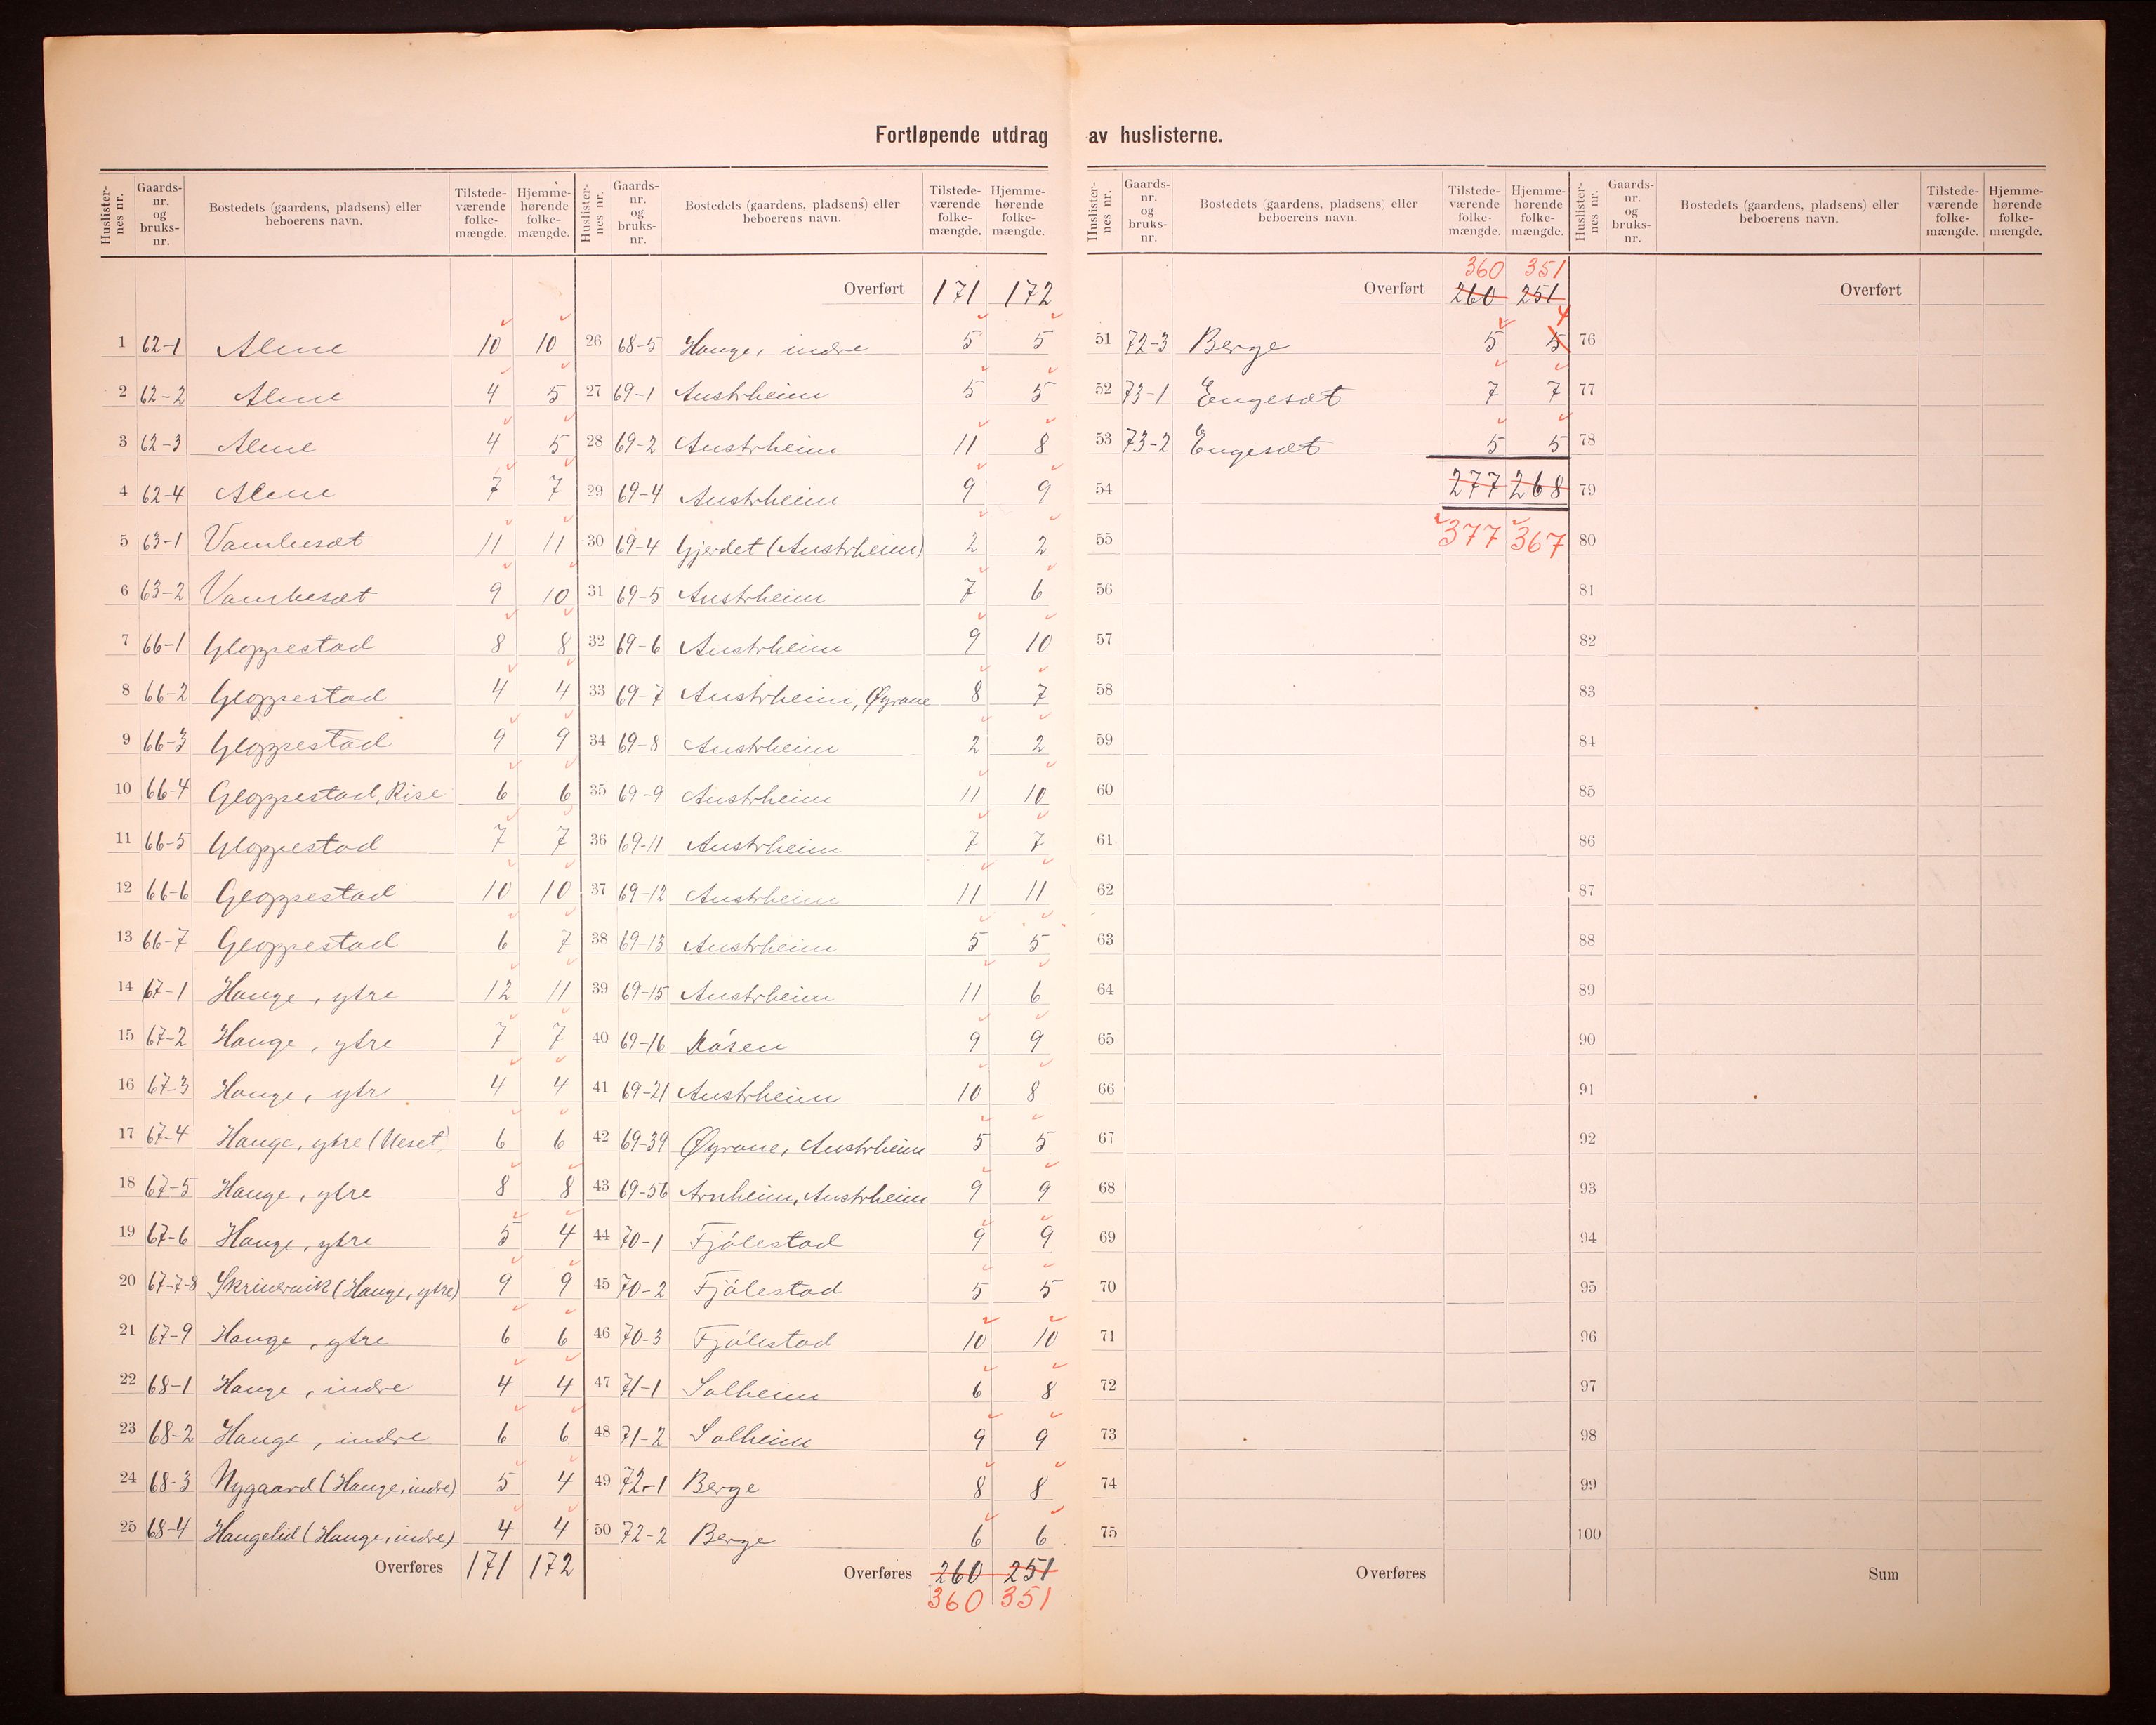 Fortløpende utdrag av huslisterne.
Huslisternes nr. Gaards-nr. og bruks-nr. Bostedets (gaardens, pladsens) eller beboerens navn. Tilstede-værende folke-mængde. Hjemme-hørende folke-mængde.
1 62-1 Alme 10 10
2 62-2 Alme 4 5
3 62-3 Alme 4 5
4 62-4 Alme 7 7
5 63-1 Vambesæt 11 11
6 63-2 Vambesæt 9 10
7 66-1 Gloppestad 8 8
8 66-2 Gloppestad 4 4
9 66-3 Gloppestad 9 9
10 66-4 Gloppestad, Rise 6 6
11 66-5 Gloppestad 7 7
12 66-6 Gloppestad 10 10
13 66-7 Gloppestad 6 7
14 67-1 Hauge, ytre 12 11
15 67-2 Hauge, ytre 7 7
16 67-3 Hauge, ytre 4 4
17 67-4 Hauge, ytre (Neset) 6 6
18 67-5 Hauge, ytre 8 8
19 67-6 Hauge, ytre 5 4
20 67-7-8 Skrinervik (Hauge, ytre) 9 9
21 67-9 Hauge, ytre 6 6
22 68-1 Hauge, indre 4 4
23 68-2 Hauge, indre 6 6
24 68-3 Nygaard (Hauge, indre) 5 4
25 68-4 Haugelid (Hauge, indre) 4 4
Overføres 171 172
Huslisternes nr. Gaards-nr. og bruks-nr. Bostedets (gaardens, pladsens) eller beboerens navn. Tilstede-værende folke-mængde. Hjemme-hørende folke-mængde.
Overført 171 172
26 68-5 Hauge, indre 5 5
27 69-1 Austrheim 5 5
28 69-2 Austrheim 11 8
29 69-4 Austrheim 9 9
30 69-4 Gjerdet (Austrheim) 2 2
31 69-5 Austrheim 7 6
32 69-6 Austrheim 9 10
33 69-7 Austrheim, Øyrane 8 7
34 69-8 Austrheim 2 2
35 69-9 Austrheim 11 10
36 69-11 Austrheim 7 7
37 69-12 Austrheim 11 11
38 69-13 Austrheim 5 5
39 69-15 Austrheim 11 6
40 69-16 9 9
41 69-21 Austrheim 10 8
42 69-39 Øyrane, Austrheim 5 5
43 69-56 Arnheim, Austrheim 9 9
44 70-1 Fjólestad 9 9
45 70-2 Fjólestad 5 5
46 70-3 Fjólestad 10 10
47 71-1 Solheim 6 8
48 71-2 Solheim 9 9
49 72-1 Berge 8 8
50 72-2 Berge 6 6
Overføres 260 251
360 351
Huslisternes nr. Gaards-nr. og bruks-nr. Bostedets (gaardens, pladsens) eller beboerens navn. Tilstede-værende folke-mængde. Hjemme-hørende folke-mængde.
360 351
Overført 260 251
51 72-3 Berge 5 5 4
52 73-1 Engesæt 7 7
53 73-2 Engesæt 5 5
54 277 268
55 377 367
56
57
58
59
60
61
62
63
64
65
66
67
68
69
70
71
72
73
74
75
Overføres
Huslisternes nr. Gaards-nr. og bruks-nr. Bostedets (gaardens, pladsens) eller beboerens navn. Tilstede-værende folke-mængde. Hjemme-hørende folke-mængde.
Overført
76
77
78
79
80
81
82
83
84
85
86
87
88
89
90
91
92
93
94
95
96
97
98
99
100
Sum